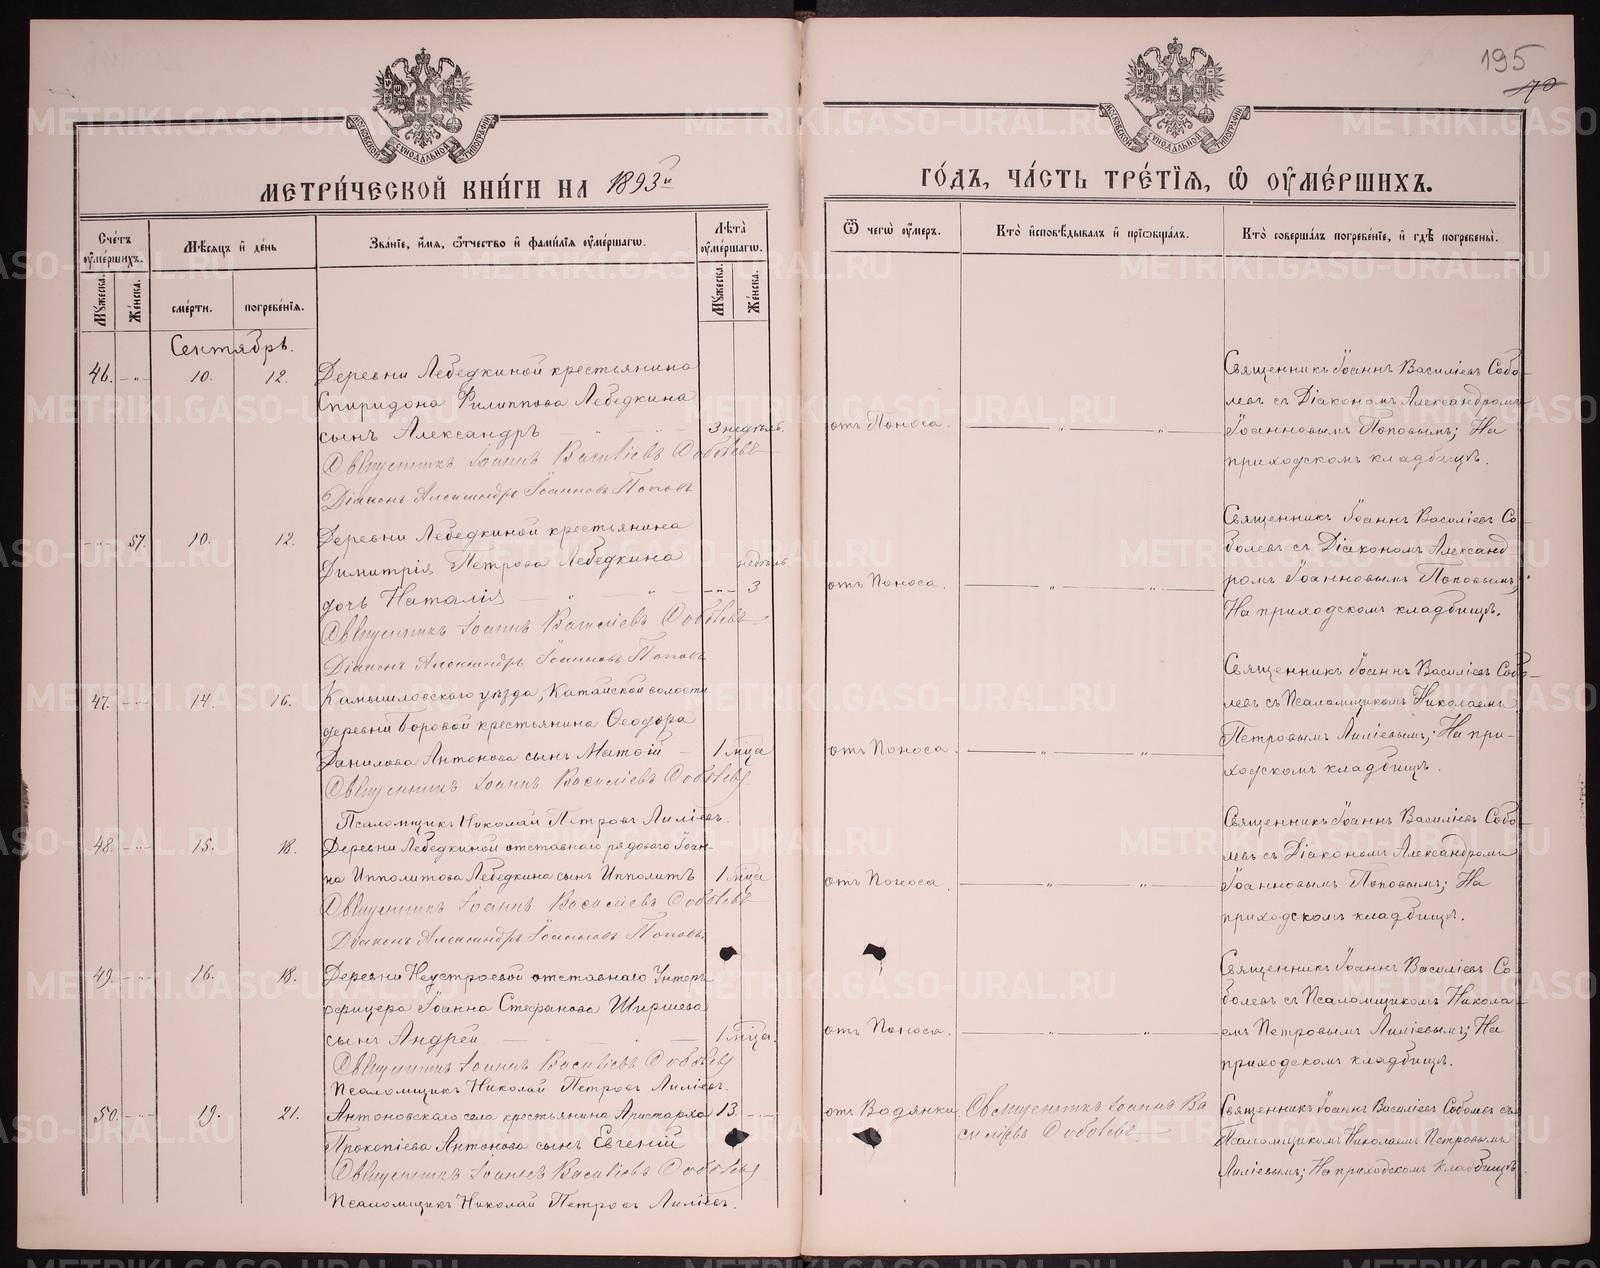 195
70
МЕТРИ́ЧЕСКОЙ КНИ́ГИ НА 1893й
ГО́ДЪ, ЧА́СТЬ ТРЕ́ТЇѦ, Ѡ҆ ОУ҆МЕ́РШИХЪ.
Сче́тъ оу҆ме́ршихъ.
Мꙋ́жеска.
Же́нска.
Мѣ́сѧцъ и҆ де́нь
сме́рти.
погребе́нїѧ.
Зва́нїе, и҆́мѧ, ѻ҆́тчество и҆ фами́лїѧ оу҆ме́ршагѡ.
Лѣ́та оу҆ме́ршагѡ.
Мꙋ́жеска.
Же́нска.
Ѿ чегѡ̀ оу҆́меръ.
Кто̀ и҆сповѣ́дывалъ и҆ прїѡбща́лъ.
Кто̀ соверша́лъ погребе́нїе, и҆ гдѣ̀ погребены̀.
Сентябрь.
46. - " - 10. 12. Деревни Лебедкиной крестьянина
Спиридона Филиппова Лебедкина
сынъ Александръ 3 недѣль.
Священникъ Іоаннъ Василіевъ Соболевъ
Діаконъ Александръ Іоанновъ Поповъ
отъ Поноса.
Священникъ Іоаннъ Василіевъ Собо-
левъ съ Діакономъ Александромъ
Іоанновымъ Поповымъ; На
приходскомъ кладбищѣ.
- " - 57. 10. 12. Деревни Лебедкиной крестьянина
Димитрія Петрова Лебедкина недѣль
дочь Наталія - " - 3
Священникъ Іоаннъ Василіевъ Соболевъ
Діаконъ Александръ Іоанновъ Поповъ
отъ Поноса.
Священникъ Іоаннъ Василіевъ Со-
болевъ съ Діакономъ Александ-
ромъ Іоанновымъ Поповымъ;
На приходскомъ кладбищѣ.
47. - " - 14. 16. Камышловскаго уѣзда, Катайской волости
деревни Боровой крестьянина Ѳеодора
Данилова Антонова сынъ Матѳій 1 мца
Священникъ Іоаннъ Василіевъ Соболевъ
Псаломщикъ Николай Петровъ Лиліевъ.
отъ Поноса.
Священникъ Іоаннъ Василіевъ Собо-
левъ съ Псаломщикомъ Николаемъ
Петровымъ Лиліевымъ; На при-
ходскомъ кладбищѣ.
48. - " - 15. 18. Деревни Лебедкиной отставнаго рядового Іоан-
на Ипполитова Лебедкина сынъ Ипполитъ 1 мца
Священникъ Іоаннъ Василіевъ Соболевъ
Діаконъ Александръ Іоанновъ Поповъ.
отъ Поноса.
Священникъ Іоаннъ Василіевъ Собо-
левъ съ Діакономъ Александромъ
Іоанновымъ Поповымъ; На
приходскомъ кладбищѣ.
49. - " - 16. 18. Деревни Неустроевой отставнаго Унтеръ-
офицера Іоанна Стефанова Ширшева
сынъ Андрей 1 мца.
Священникъ Іоаннъ Василіевъ Соболевъ
Псаломщикъ Николай Петровъ Лиліевъ.
отъ Поноса.
Священникъ Іоаннъ Василіевъ Со-
болевъ съ Псаломщикомъ Никола-
емъ Петровымъ Лиліевымъ; На
приходскомъ кладбищѣ.
50. - " - 19. 21. Антоновскаго села крестьянина Аристарха 13
Прокопіева Антонова сынъ Евгеній
Священникъ Іоаннъ Василіевъ Соболевъ
Псаломщикъ Николай Петровъ Лиліевъ.
отъ Водянки
Священникъ Іоаннъ Ва
силіевъ Соболевъ
Священникъ Іоаннъ Василіевъ Соболевъ съ
Псаломщикомъ Николаемъ Петровымъ
Лиліевымъ; На приходскомъ кладбищѣ.
METRIKI.GASO-URAL.RU